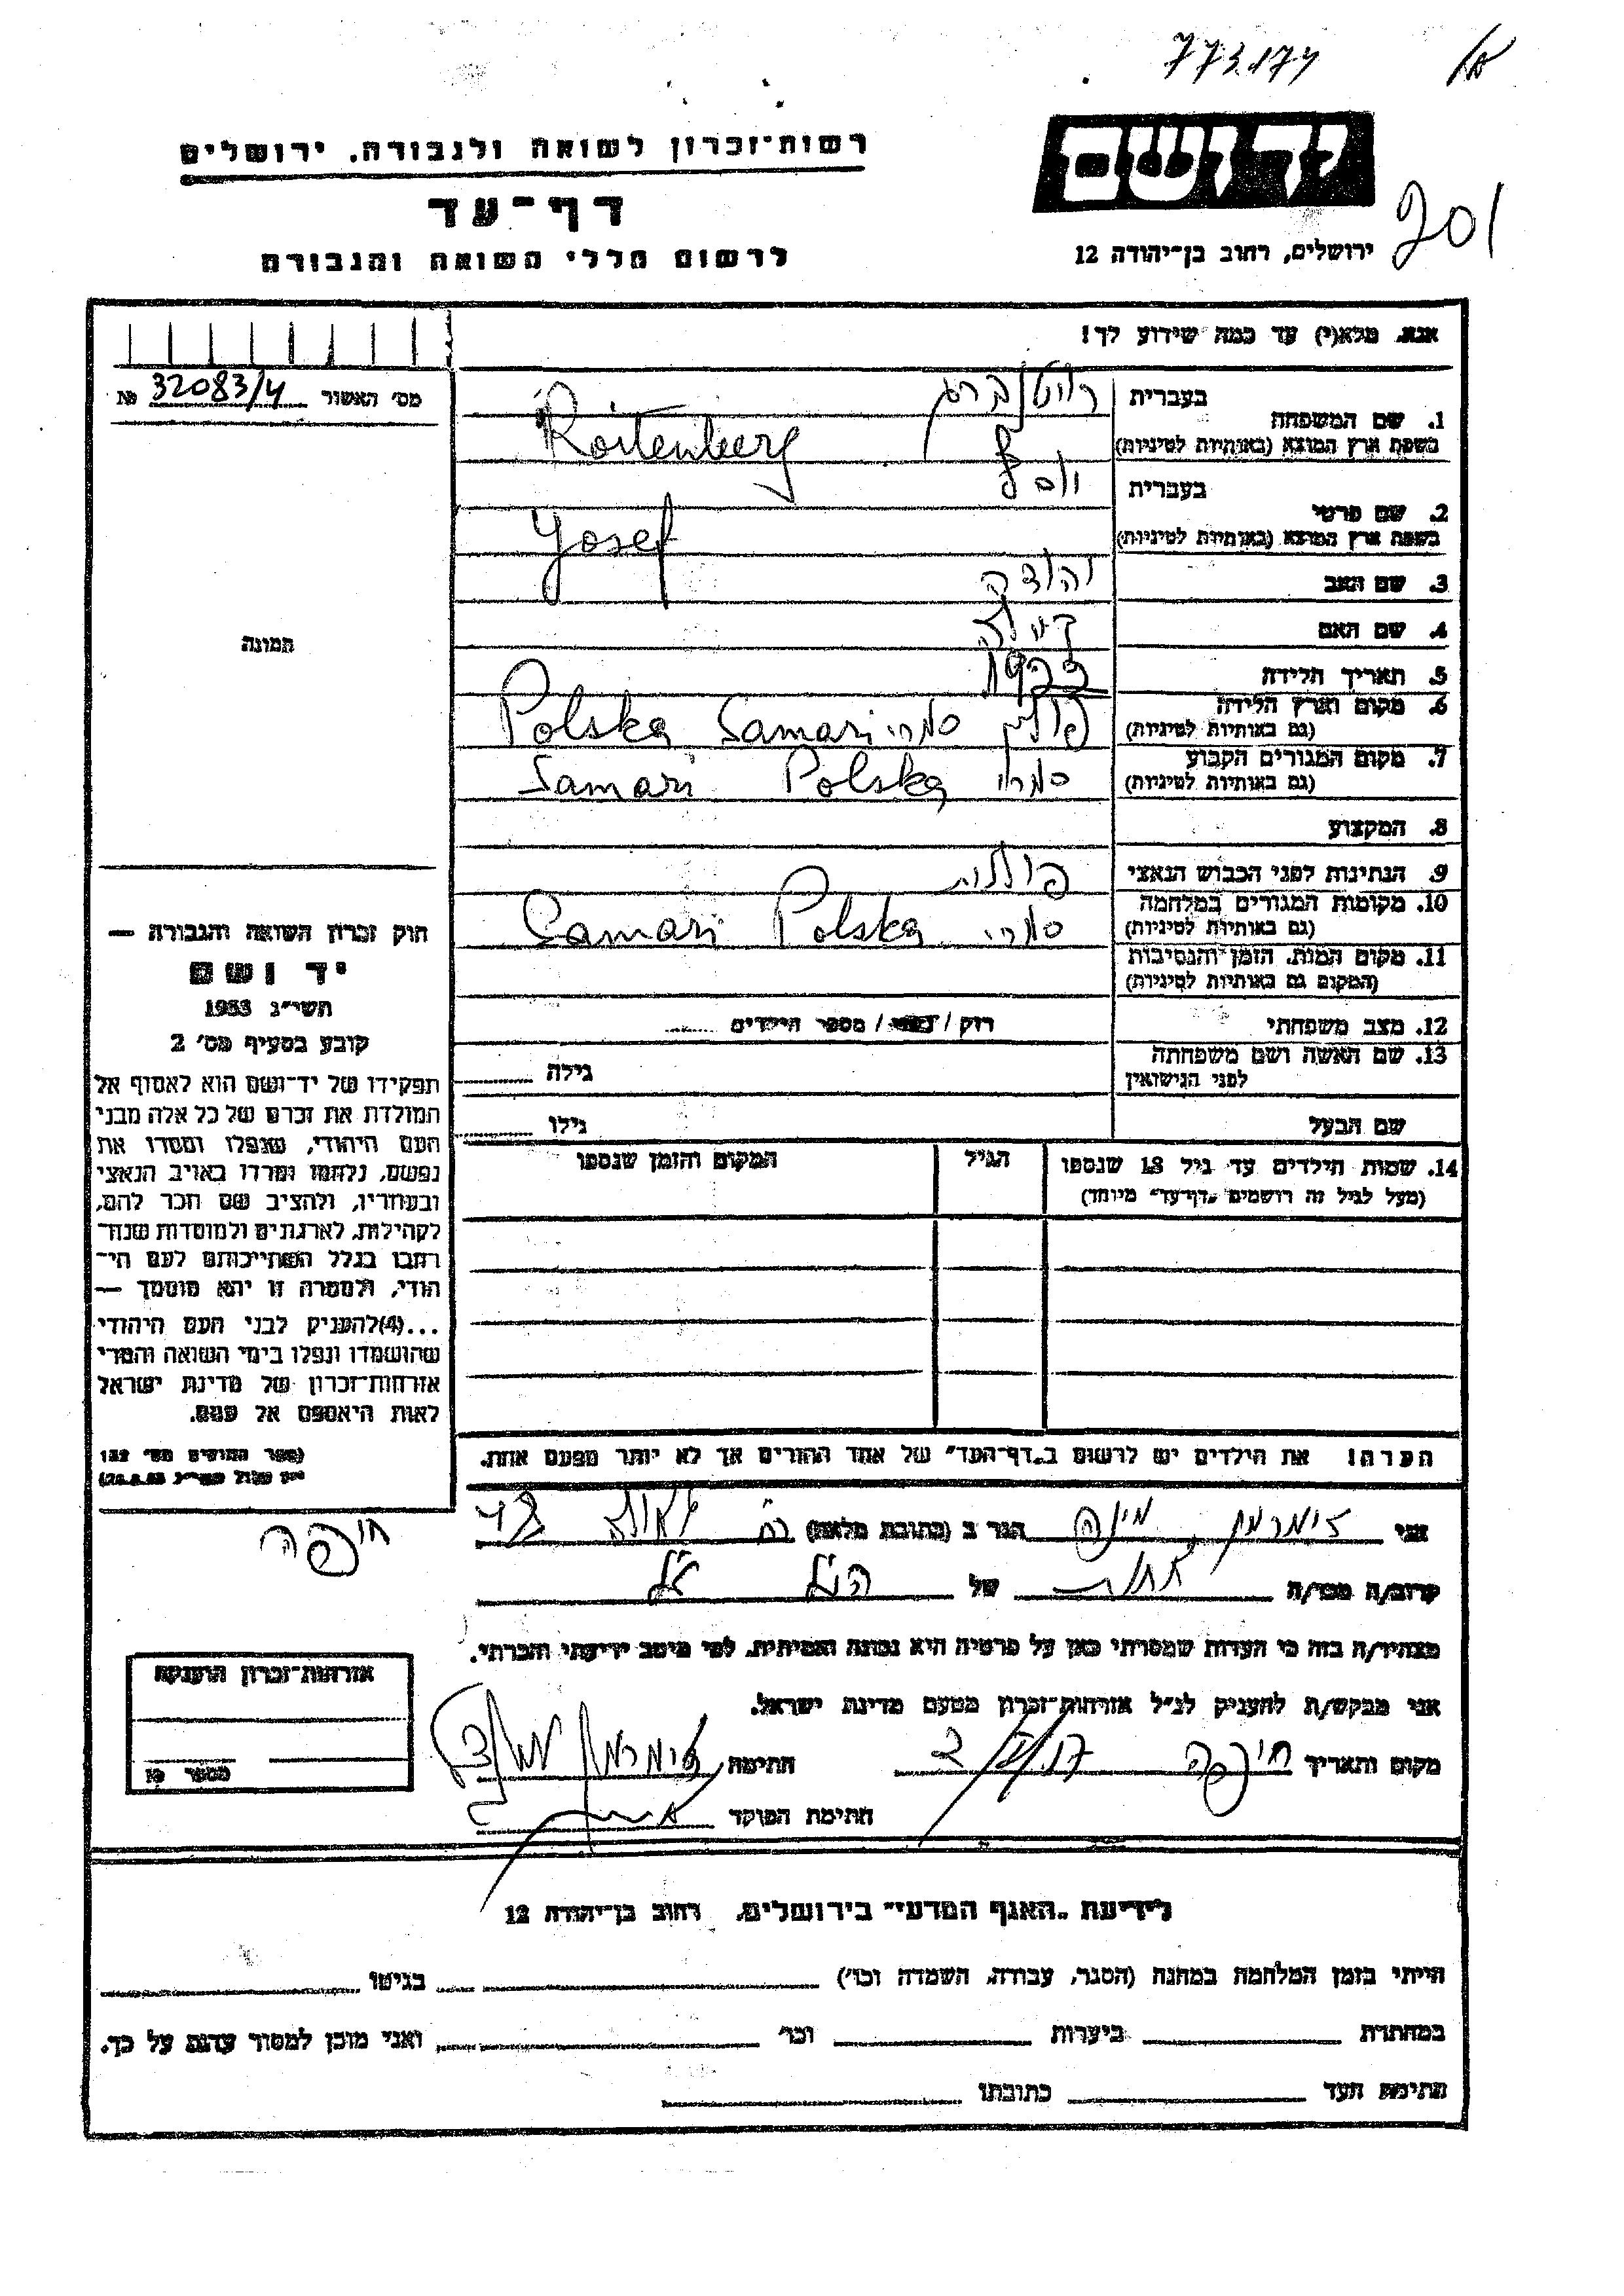 773174
רשות־זכרון לשואה ולגבורה, ירושלים
יד ושם
דף־עד
201
לרשום חללי השואה והגבורה
ירושלים, רחוב בן־יהודה 12
אנא, מלא(י) עד כמה שידוע לך!
מס׳ האשור 32083/4 №
בעברית
1. שם המשפחה
בשפת ארץ המוצא (באותיות לטיניות) Roitenberg
בעברית יוסף
2. שם פרטי
בשפת ארץ המוצא (באותיות לטיניות) Yosef
3. שם האב יהודה
4. שם האם
תמונה
5. תאריך הלידה
6. מקום וארץ הלידה
(גם באותיות לטיניות) פולין סמרי Polska Samari
7. מקום המגורים הקבוע
(גם באותיות לטיניות) סמרי Samari Polska
8. המקצוע
9. הנתינות לפני הכבוש הנאצי פולנית
10. מקומות המגורים במלחמה
(גם באותיות לטיניות) סמרי Samari Polska
11. מקום המות, הזמן והנסיבות
(המקום גם באותיות לטיניות)
12. מצב משפחתי רוק / נשוי / מספר הילדים
13. שם האשה ושם משפחתה
לפני הנישואין גילה
שם הבעל גילו
14. שמות הילדים עד גיל 18 שנספו הגיל המקום והזמן שנספו
(מעל לגיל זה רושמים „דף־עד״ מיוחד)
חוק זכרון השואה והגבורה —
יד ושם
תשי״ג 1953
קובע בסעיף מס׳ 2
תפקידו של יד־ושם הוא לאסוף אל
המולדת את זכרם של כל אלה מבני
העם היהודי, שנפלו ומסרו את
נפשם, נלחמו ומרדו באויב הנאצי
ובעוזריו, ולהציב שם וזכר להם,
לקהילות, לארגונים ולמוסדות שנח־
רבו בגלל השתייכותם לעם הי־
הודי, ולמטרה זו יהא מוסמך —
...(4)להעניק לבני העם היהודי
שהושמדו ונפלו בימי השואה והמרי
אזרחות־זכרון של מדינת ישראל
לאות היאספם אל עמם.
(ספר החוקים מס׳ 132
הערה! את הילדים יש לרשום ב„דף־העד״ של אחד ההורים אך לא יותר מפעם אחת.
אני צימרמן הגר ב (כתובת מלאה) רח׳ גאולה
חיפה
קרוב/ה מכר/ה אחות של הנ״ל
מצהיר/ה בזה כי העדות שמסרתי כאן על פרטיה היא נכונה ואמיתית, לפי מיטב ידיעתי והכרתי.
אני מבקש/ת להעניק לנ״ל אזרחות־זכרון מטעם מדינת ישראל.
מקום ותאריך חיפה חתימה צימרמן
חתימת הפוקד
אזרחות־זכרון הוענקה
מספר №
לידיעת „האגף המדעי״ בירושלים, רחוב בן־יהודה 12
הייתי בזמן המלחמה במחנה (הסגר, עבודה, השמדה וכו׳) בגיטו
במחתרת ביערות וכו׳ ואני מוכן למסור עדות על כך.
חתימת העד כתובתו